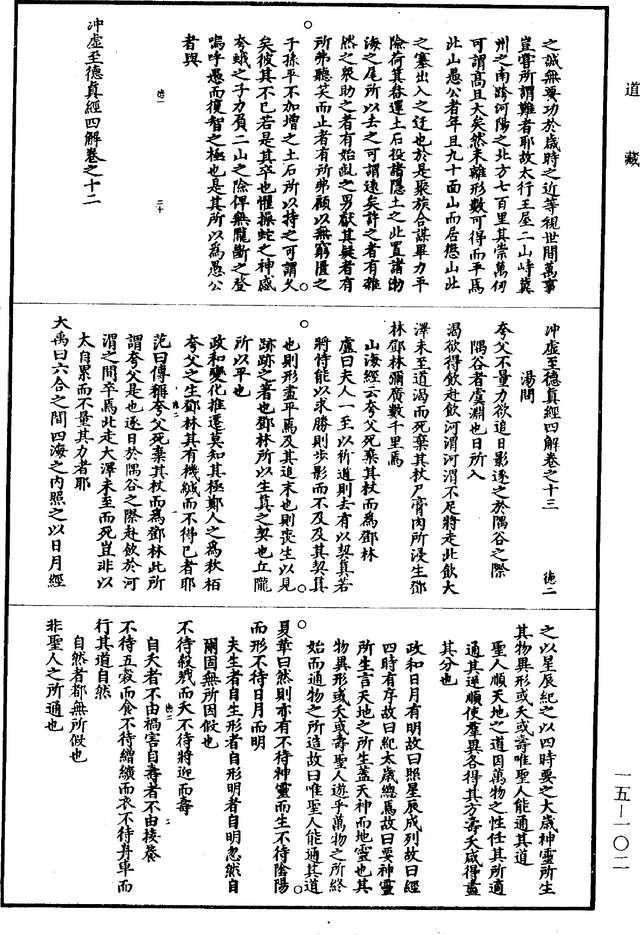 道藏
之誠無要功於歲時之近等視世間萬事
豈嘗所謂難者耶故太行王屋二山峙冀
州之南跨河陽之北方七百里其崇萬仞
可謂高且大矣然未離形數可得而平焉
此山愚公者年且九十面山而居懲山北
之塞出入之迂也於是聚族合謀畢力平
險荷其畚運土石投諸隱土之北置諸渤
海之尾所以去之可謂遠矣許之者有雜
然之衆助之者有始齓之男獻其疑者有
所弗聽笑而止者有所弗顧以無窮匱之
子孫平不加增之土石所以持之可謂久
矣彼其不已若是其卒也懼操蛇之神感
夸蛾之子力負二山之險俾無隴斷之登
嗚呼愚而復智之極也是其所以為愚公
者與
沖虛至德真經四解卷之十二
德一 二十
沖虛至德真經四解卷之十三 德二
湯問
夸父不量力欲追日影逐之於隅谷之際
隅谷者虞淵也日所入
渴欲得飲赴飲河渭河渭不足將走北飲大
澤未至道渴而死棄其杖尸膏肉所浸生鄧
林鄧林彌廣數千里焉
山海經云夸父死棄其杖而為鄧林
盧曰夫人一至以祈道則去有以契真若
將恃能以求勝則步影而不及及其契真
也則形盡平焉及其追末也則喪生以見
跡跡之著也鄧林所以生真之契也丘隴
所以平也
政和變化推遷莫知其極鄭人之為秋栢
夸父之生鄧林其有機緘而不得已者耶
范曰傳稱夸父死棄其杖而為鄧林此所
謂夸父是也逐日於隅谷之際赴飲於河
渭之間卒焉北走大澤未至而死豈非以
太自累而不量其力者耶
大禹曰六合之間四海之內照之以日月經
之以星辰紀之以四時要之太歲神靈所生
其物異形或夭或壽唯聖人能通其道
聖人順天地之道因萬物之性任其所適
通其逆順使羣異各得其方壽夭咸得盡
其分也
政和日月有明故曰照星辰成列故曰經
四時有序故曰紀太歲總焉故曰要神靈
所生言天地之所生蓋天神而地靈也其
物異形或夭或壽聖人遊乎萬物之所終
始而通物之所造故曰唯聖人能通其道
夏革曰然則亦有不待神靈而生不待陰陽
而形不待日月而明
夫生者自生形者自形明者自明忽然自
爾固無所因假也
不待殺戮而夭不待將迎而壽
自夭者不由禍害自壽者不由接養
不待五穀而食不待繒纊而衣不待舟車而
行其道自然
自然者都無所假也
非聖人之所通也
一五—一〇二